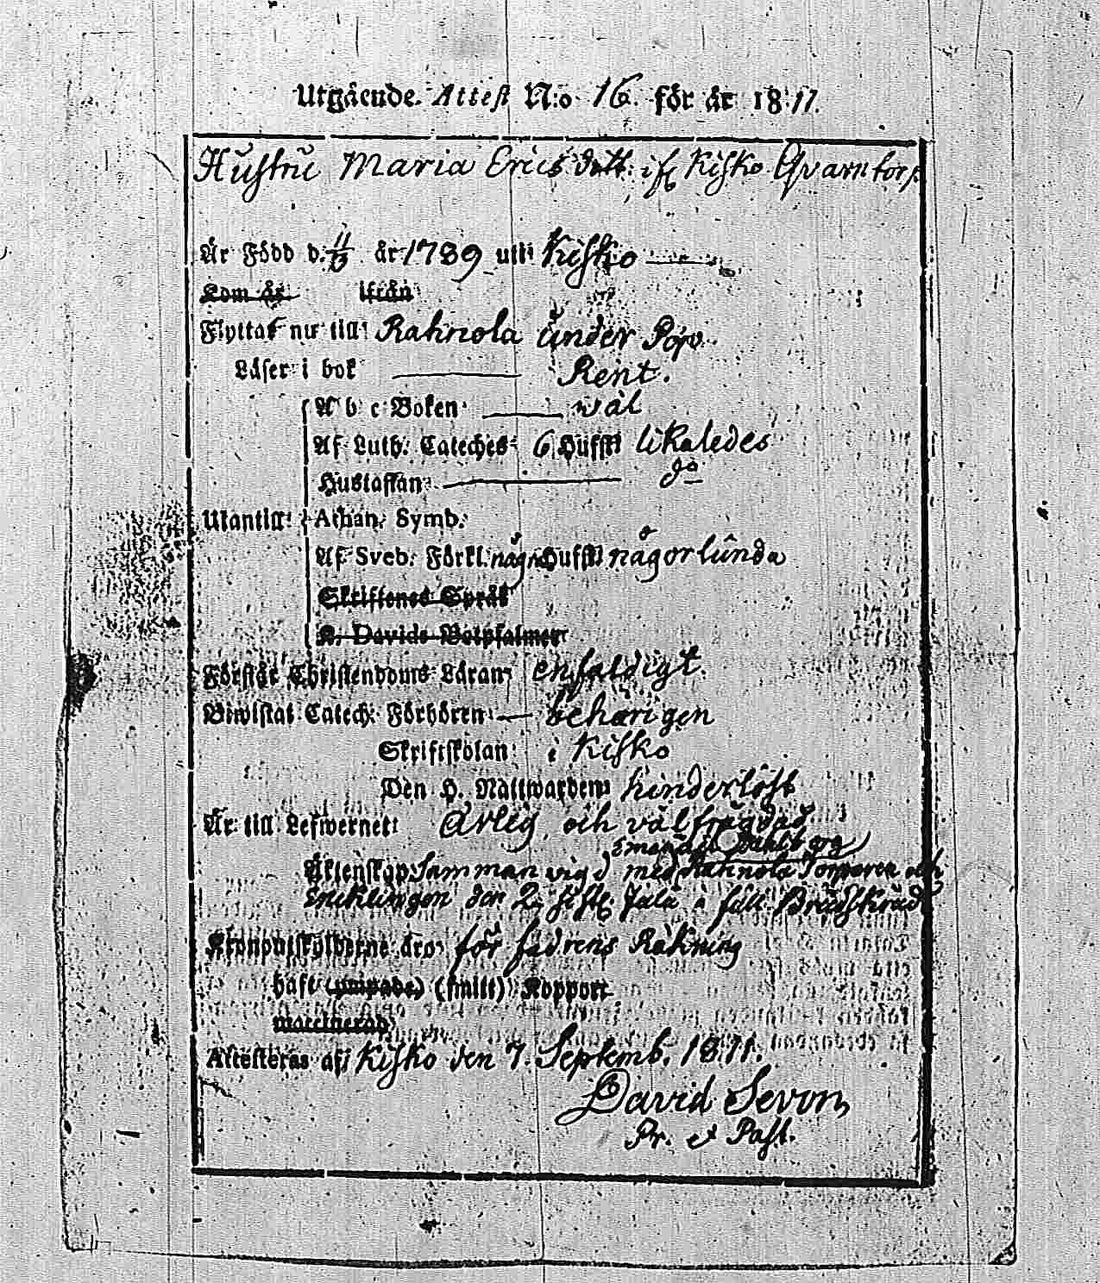 Utgående Attest N:o 16. för år 1811.
Hustru Maria Ericsdott: if Kisko Qvarntorp
Är Född d. 11/3 år 1789 uti Kisko
Kom år ifrån
Flyttat nu till Rahnola under Pojo
Läser i bok Rent.
A b c Boken wäl
Af Luth. Cateches 6 Hufst likaledes
Hustaflan do
Utantill: Athan. Symb.
Af Sveb. Förkl. några Hufst någorlunda
Skriftenes Språk
K. Davids Botpsalmer
Förstår Christendoms Läran enfaldigt.
Biwistat Catech. Förhören behörigen
Skriftskolan i Kisko
Den H. Nattwarden hinderlöst
Är till Lefwernet ärlig och välfrägdad.
Äktenskap Sammanvigd med Rahnola Torparen och
Enklingen den 2. Jula i full Brudskrud
Kronoutskylderne äro för fadrens Räkning
haft (ympade) (smitt) Koppor
vaccinerad
Attesteras af Kisko den 7. Septemb. 1811.
David Sevon
Pr. et Past.